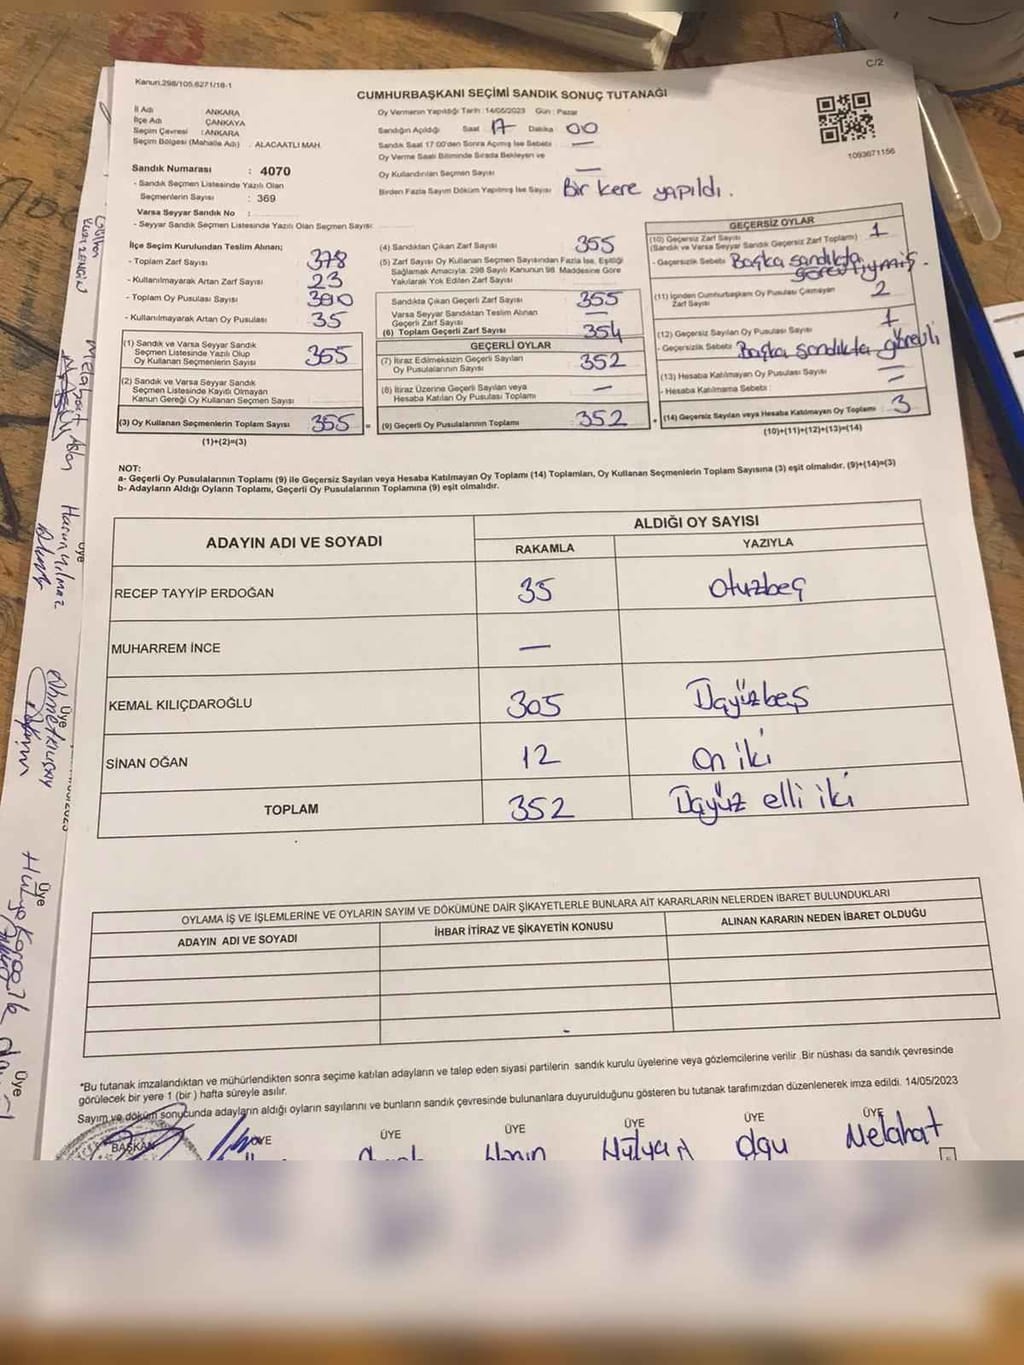 C/2
Kanun.298/105.6271/18-1
CUMHURBAŞKANI SEÇİMİ SANDIK SONUÇ TUTANAĞI
İl Adı ANKARA
İlçe Adı ÇANKAYA
Seçim Çevresi : ANKARA
Seçim Bölgesi (Mahalle Adı) : ALACAATLI MAH.
Oy Vermenin Yapıldığı Tarih :14/05/2023 Gün : Pazar
Sandığın Açıldığı Saat 17 Dakika 00
Sandık Saat 17.00'den Sonra Açılmış İse Sebebi —
Oy Verme Saati Bitiminde Sırada Bekleyen ve
Oy Kullandırılan Seçmen Sayısı —
Birden Fazla Sayım Döküm Yapılmış İse Sayısı Bir kere yapıldı.
1093671156
Sandık Numarası : 4070
- Sandık Seçmen Listesinde Yazılı Olan
Seçmenlerin Sayısı : 369
Varsa Seyyar Sandık No :
- Seyyar Sandık Seçmen Listesinde Yazılı Olan Seçmen Sayısı:
İlçe Seçim Kurulundan Teslim Alınan;
- Toplam Zarf Sayısı 378
- Kullanılmayarak Artan Zarf Sayısı 23
- Toplam Oy Pusulası Sayısı
- Kullanılmayarak Artan Oy Pusulası 35
(1) Sandık ve Varsa Seyyar Sandık
Seçmen Listesinde Yazılı Olup
Oy Kullanan Seçmenlerin Sayısı 355
(2) Sandık ve Varsa Seyyar Sandık
Seçmen Listesinde Kayıtlı Olmayan
Kanun Gereği Oy Kullanan Seçmen Sayısı
(3) Oy Kullanan Seçmenlerin Toplam Sayısı 355 =
(1)+(2)=(3)
(4) Sandıktan Çıkan Zarf Sayısı 355
(5) Zarf Sayısı Oy Kullanan Seçmen Sayısından Fazla İse, Eşitliği
Sağlamak Amacıyla, 298 Sayılı Kanunun 98. Maddesine Göre
Yakılarak Yok Edilen Zarf Sayısı
Sandıkta Çıkan Geçerli Zarf Sayısı 355
Varsa Seyyar Sandıktan Teslim Alınan
Geçerli Zarf Sayısı —
(6) Toplam Geçerli Zarf Sayısı 354
GEÇERLİ OYLAR
(7) İtiraz Edilmeksizin Geçerli Sayılan
Oy Pusulalarının Sayısı 352
(8) İtiraz Üzerine Geçerli Sayılan veya
Hesaba Katılan Oy Pusulası Toplamı —
(9) Geçerli Oy Pusulalarının Toplamı 352 +
GEÇERSİZ OYLAR
(10) Geçersiz Zarf Sayısı
(Sandık ve Varsa Seyyar Sandık Geçersiz Zarf Toplamı) 1
- Geçersizlik Sebebi Başka sandıkta
görevliymiş.
(11) İçinden Cumhurbaşkanı Oy Pusulası Çıkmayan
Zarf Sayısı 2
(12) Geçersiz Sayılan Oy Pusulası Sayısı
- Geçersizlik Sebebi Başka sandıkta görevli
(13) Hesaba Katılmayan Oy Pusulası Sayısı —
- Hesaba Katılmama Sebebi : —
(14) Geçersiz Sayılan veya Hesaba Katılmayan Oy Toplamı 3
(10)+(11)+(12)+(13)=(14)
NOT:
a- Geçerli Oy Pusulalarının Toplamı (9) ile Geçersiz Sayılan veya Hesaba Katılmayan Oy Toplamı (14) Toplamları, Oy Kullanan Seçmenlerin Toplam Sayısına (3) eşit olmalıdır. (9)+(14)=(3)
b- Adayların Aldığı Oyların Toplamı, Geçerli Oy Pusulalarının Toplamına (9) eşit olmalıdır.
ADAYIN ADI VE SOYADI ALDIĞI OY SAYISI
RAKAMLA YAZIYLA
RECEP TAYYİP ERDOĞAN 35 Otuzbeş
MUHARREM İNCE —
KEMAL KILIÇDAROĞLU 305 Üçyüzbeş
SİNAN OĞAN 12 On iki
TOPLAM 352 Üçyüz elli iki
OYLAMA İŞ VE İŞLEMLERİNE VE OYLARIN SAYIM VE DÖKÜMÜNE DAİR ŞİKAYETLERLE BUNLARA AİT KARARLARIN NELERDEN İBARET BULUNDUKLARI
ADAYIN ADI VE SOYADI İHBAR İTİRAZ VE ŞİKAYETİN KONUSU ALINAN KARARIN NEDEN İBARET OLDUĞU
*Bu tutanak imzalandıktan ve mühürlendikten sonra seçime katılan adayların ve talep eden siyasi partilerin sandık kurulu üyelerine veya gözlemcilerine verilir .Bir nüshası da sandık çevresinde
görülecek bir yere 1 (bir ) hafta süreyle asılır.
Sayım ve döküm sonucunda adayların aldığı oyların sayılarını ve bunların sandık çevresinde bulunanlara duyurulduğunu gösteren bu tutanak tarafımızdan düzenlenerek imza edildi. 14/05/2023
BAŞKAN ÜYE ÜYE ÜYE ÜYE ÜYE ÜYE
Hülya Olgu Melahat
Melahat Aslan
Üye
Harun Yılmaz
Üye
Üye
Hülya
Üye